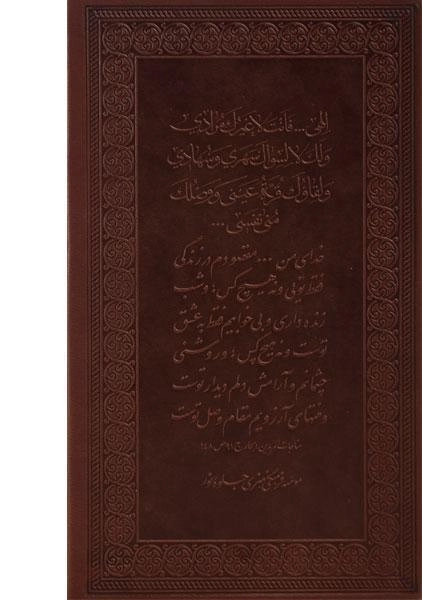 الهی... فانت لا غیرک مرادی
ولک لا لسواک سهری و سهادی
و لقاؤک قرة عینی و وصلک
منی نفسی...
خدای من... مقصودم در زندگی
فقط تویی و نه هیچ کس؛ و شب
زنده داری و بی خوابیم فقط به عشق
توست و نه هیچ کس؛ و روشنی
چشمانم و آرامش دلم دیدار توست
و منتهای آرزویم مقام وصل توست
مناجات مریدین، بحار ج ۹۱ ص ۱۴۸
موسسه فرهنگی هنری جلوه نور